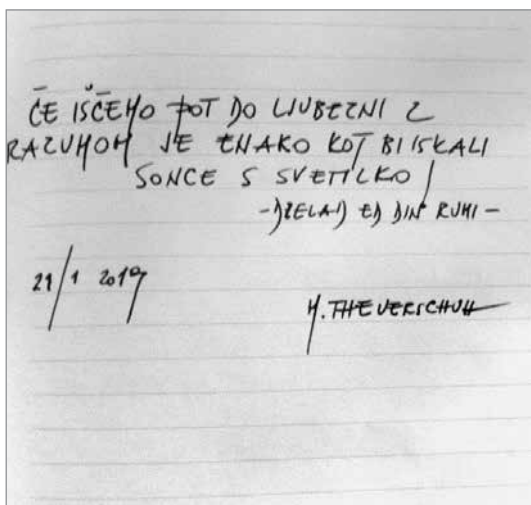 ČE IŠČEMO POT DO LJUBEZNI Z
RAZUMOM JE ENAKO KOT BI ISKALI
SONCE S SVETILKO!
-DŽELAD ED DIN RUMI-
21/1 2019
M. THEUERSCHUH